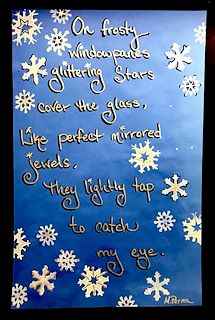 On frosty
windowpanes
glittering Stars
cover the glass,
Like perfect mirrored
jewels.
They lightly tap
to catch
my eye.